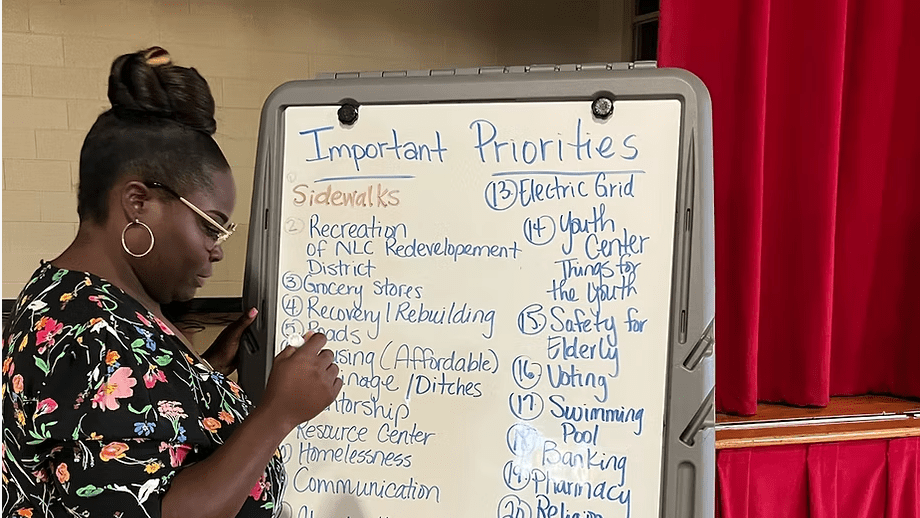 Important Priorities
Sidewalks
2 Recreation
of NLC Redevelopement
District
3 Grocery Stores
4 Recovery/Rebuilding
5 Roads
(Affordable)
/Ditches
Resource Center
Homelessness
Communication
13 Electric Grid
14 Youth
Center
Things for
the Youth
15 Safety for
Elderly
16 Voting
17 Swimming
Pool
18 Banking
19 Pharmacy
20 Religion